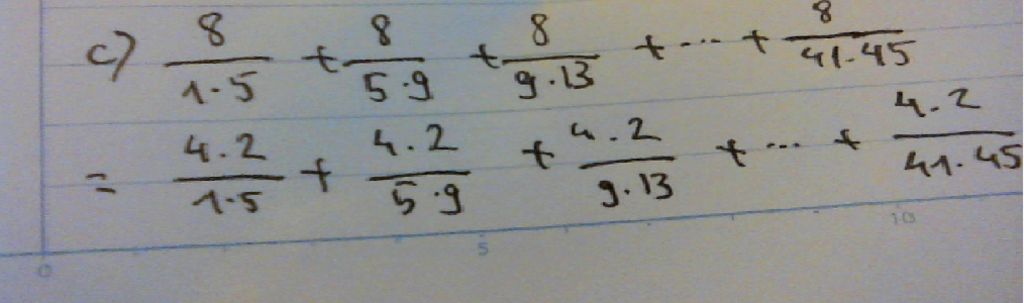 c) 8/1·5 + 8/5·9 + 8/9·13 + ... + 8/41·45
= 4·2/1·5 + 4·2/5·9 + 4·2/9·13 + ... + 4·2/41·45
0 5 10